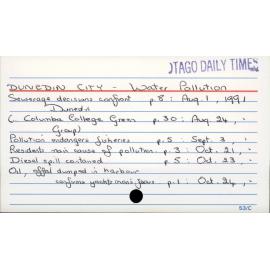 OTAGO DAILY TIMES
DUNEDIN CITY - Water Pollution
Sewerage decisions confront p.8 : Aug. 1, 1991
Dunedin
( Columba College Green p.30 : Aug. 24, "
Group)
Pollution endangers fisheries p.5 : Sept. 3, "
Residents main cause of pollution p.3 : Oct. 21, "
Diesel spill contained p.5 : Oct. 23, "
Oil, offal dumped in harbour
confirms yachtsman's fears p.1 : Oct. 24, "
53/C